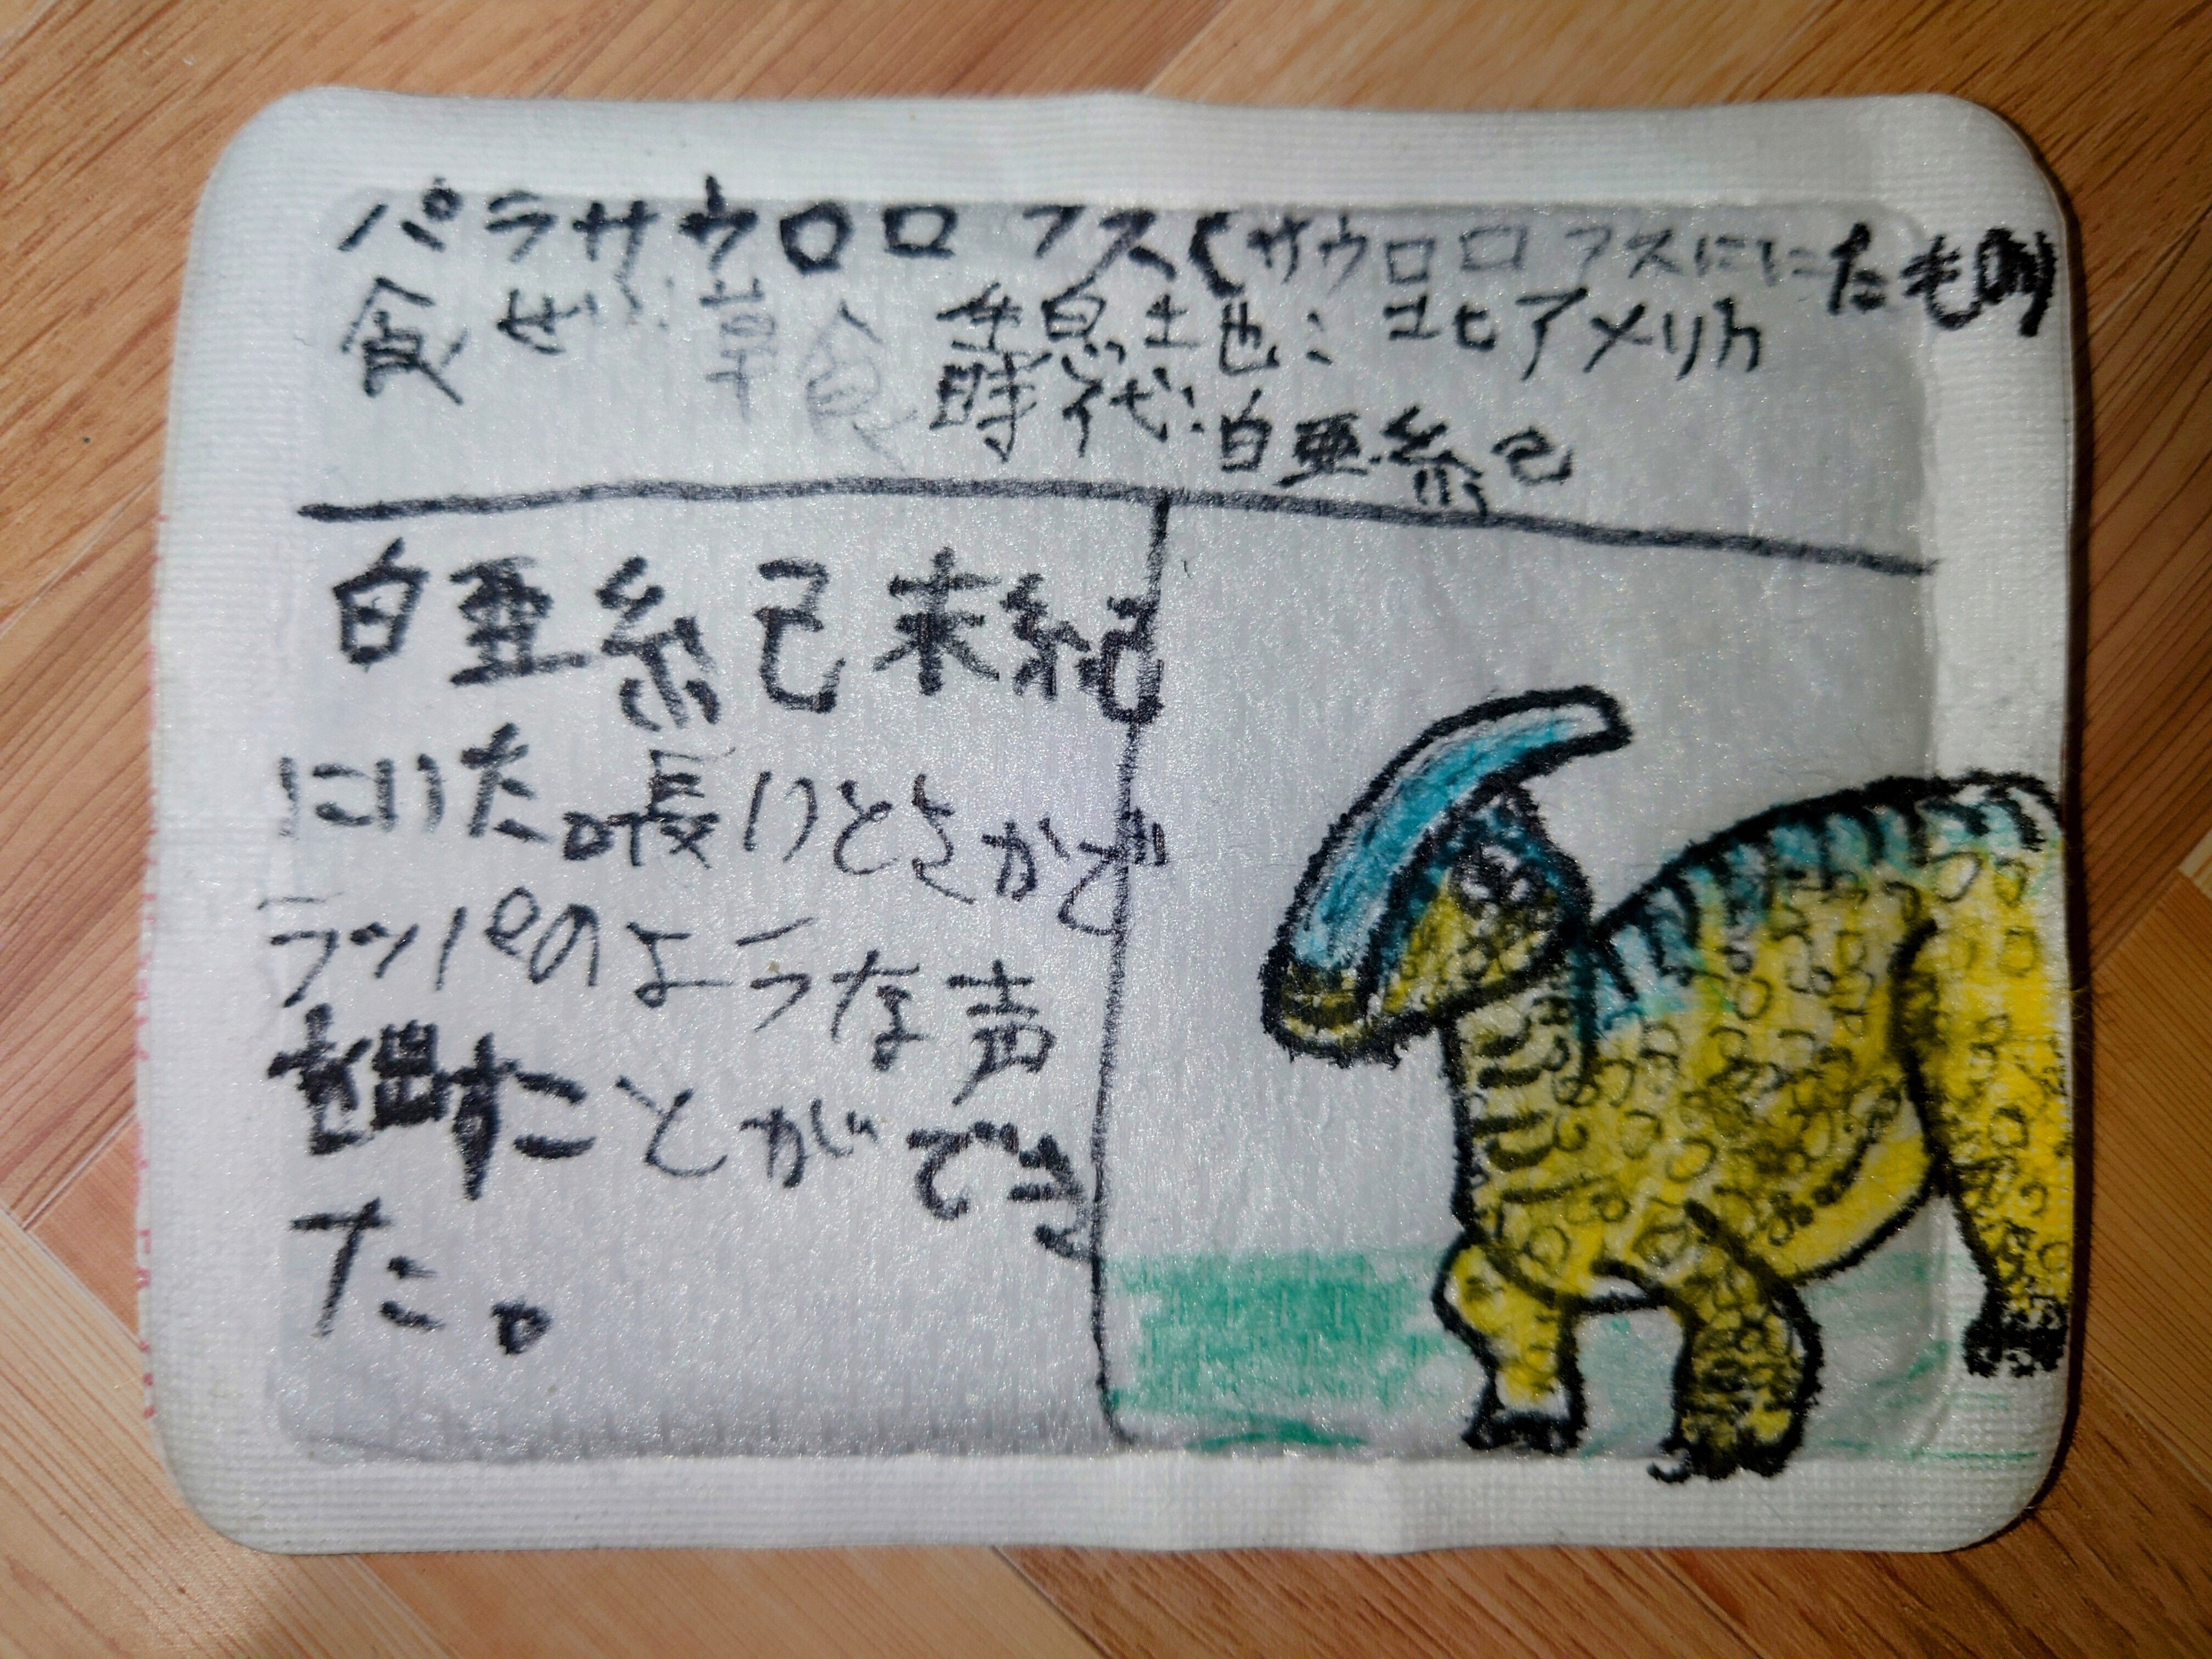 パラサウロロフス(サウロロフスににたもの)
食せい:草食 生息土地:北アメリカ
時代:白亜紀
白亜紀末紀
にいた。長いとさかで
ラッパのような声
を出すことができ
た。